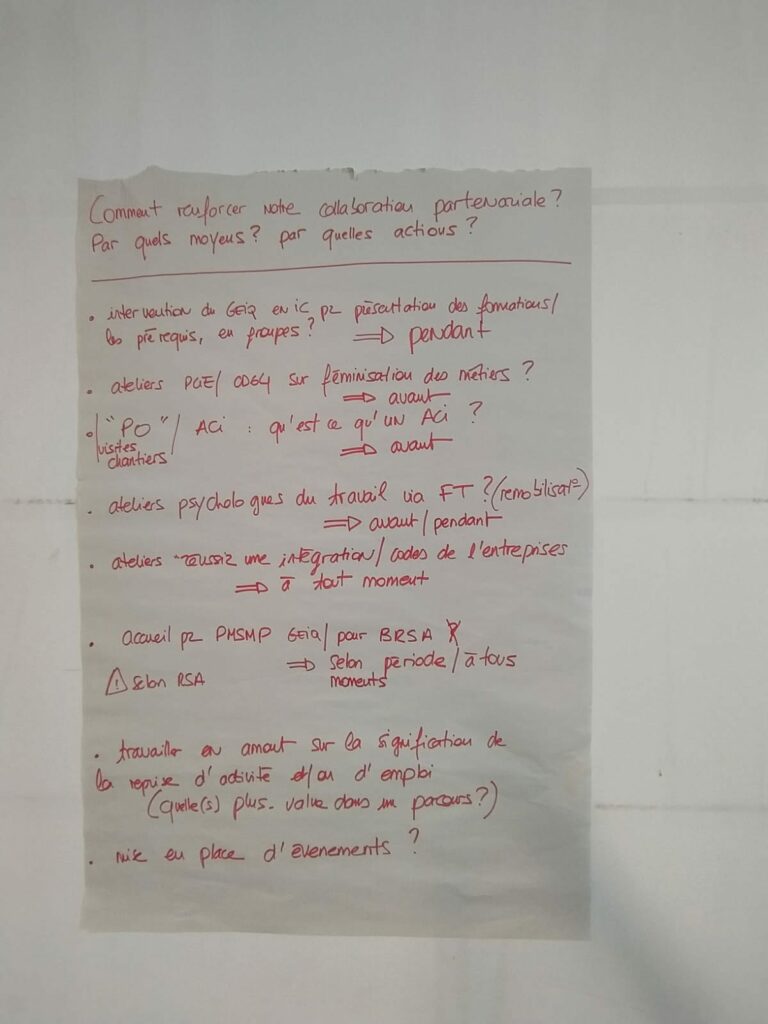 Comment renforcer notre collaboration partenariale ?
Par quels moyens ? par quelles actions ?
• intervention du GEIQ en ic pr présentation des formations/
les prérequis, en groupes ? ⇒ pendant
• ateliers PGE/ CD64 sur féminisation des métiers ?
⇒ avant
• /"PO"/ ACi : qu'est ce qu'un ACi ?
visites
chantiers
⇒ avant
• ateliers psychologues du travail via FT ? (remobilisatº)
⇒ avant/pendant
• ateliers "réussir une intégration/ codes de l'entreprises
⇒ à tout moment
• accueil pr PMSMP GEiQ/ pour BRSA
⇒ selon période/ à tous
moments
⚠ selon RSA
• travailler en amont sur la signification de
la reprise d'activité et/ou d'emploi
(quelle(s) plus-value dans un parcours ?)
• mise en place d'évenements ?